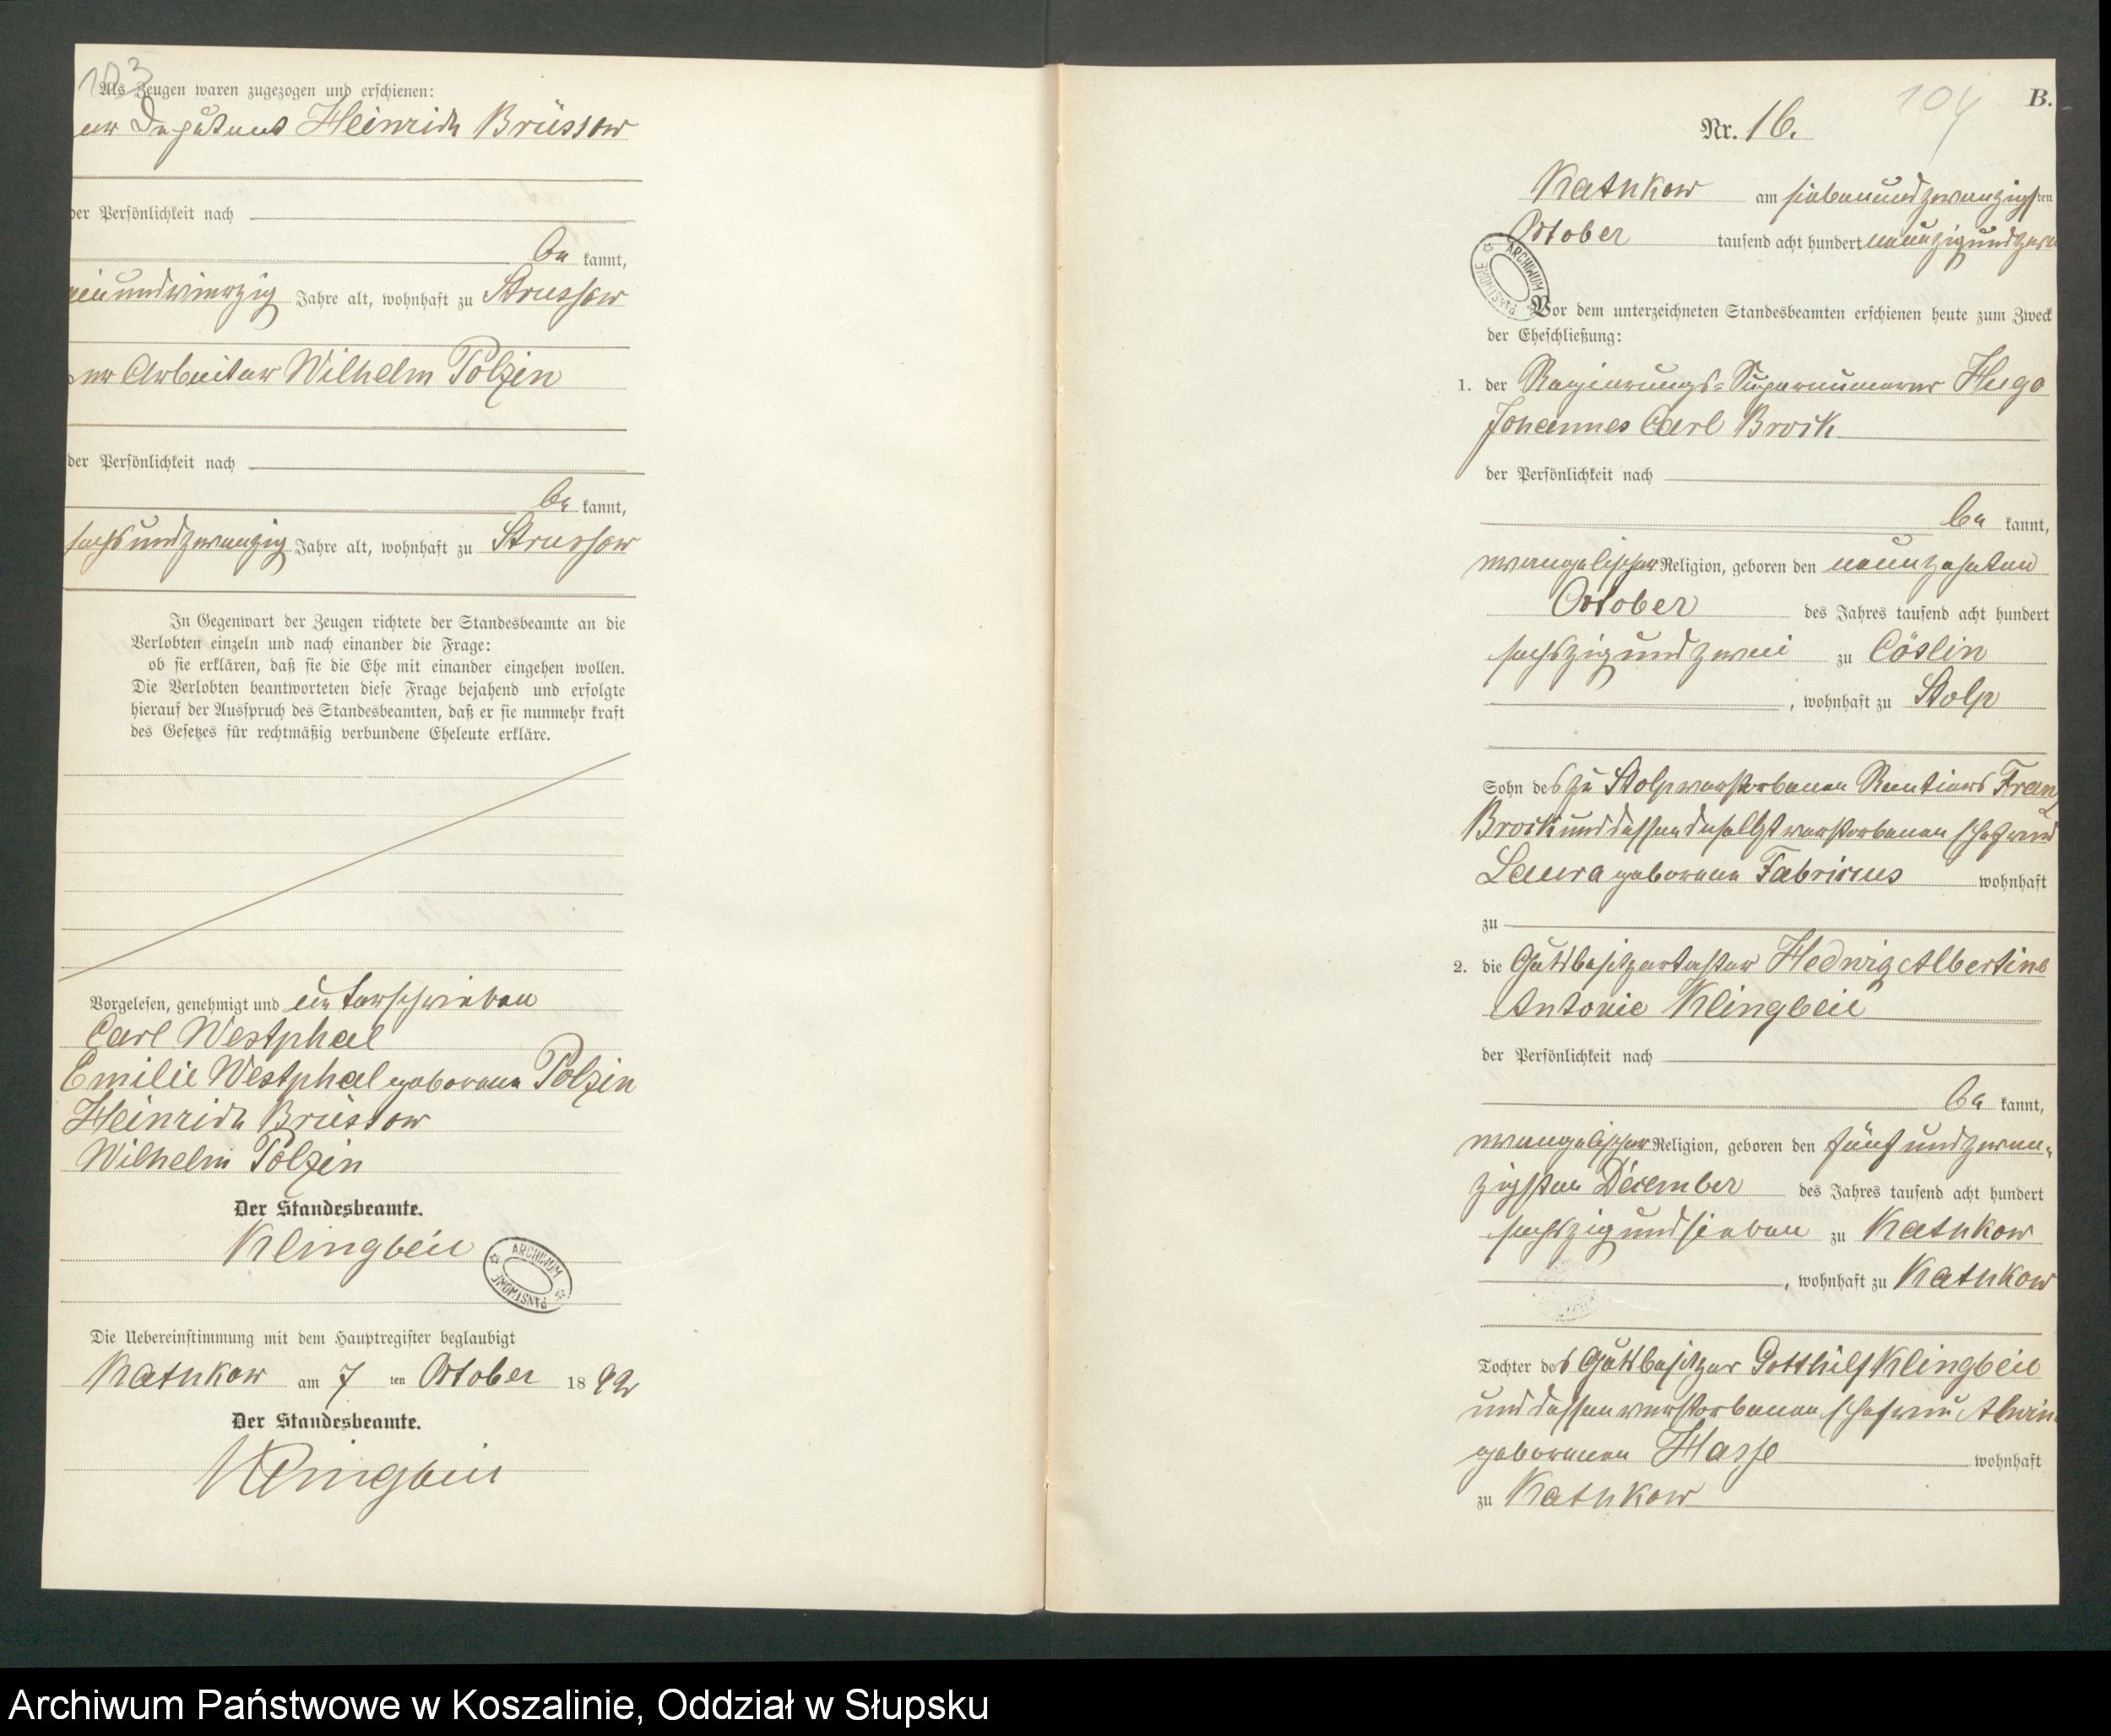 103
Als Zeugen waren zugezogen und erschienen:
der Deputant Heinrich Brüssow
der Persönlichkeit nach
be kannt,
undvierzig Jahre alt, wohnhaft zu Strussow
der Arbeiter Wilhelm Polzin
der Persönlichkeit nach
be kannt,
sechsundzwanzig Jahre alt, wohnhaft zu Strussow
In Gegenwart der Zeugen richtete der Standesbeamte an die
Verlobten einzeln und nach einander die Frage:
ob sie erklären, daß sie die Ehe mit einander eingehen wollen.
Die Verlobten beantworteten diese Frage bejahend und erfolgte
hierauf der Ausspruch des Standesbeamten, daß er sie nunmehr kraft
des Gesetzes für rechtmäßig verbundene Eheleute erkläre.
Vorgelesen, genehmigt und unterschrieben
Carl Westphal
Emilie Westphal geborene Polzin
Heinrich Brüssow
Wilhelm Polzin
Der Standesbeamte.
Klingbeil
ARCHIWUM PAŃSTWOWE
Die Uebereinstimmung mit dem Hauptregister beglaubigt
Kathkow am 7 ten October 18 92
Der Standesbeamte.
Klingbeil
104
B.
Nr. 16.
Kathkow am siebenundzwanzigsten
October tausend acht hundert neunzigundzwei
ARCHIWUM PAŃSTWOWE
Vor dem unterzeichneten Standesbeamten erschienen heute zum Zweck
der Eheschließung:
1. der Regierungs-Supernumerar Hugo
Johannes Carl Brock
der Persönlichkeit nach
be kannt,
evangelischer Religion, geboren den neunzehnten
October des Jahres tausend acht hundert
sechszigundzwei zu Cöslin
, wohnhaft zu Stolp
Sohn des zu Stolp verstorbenen Rentiers Franz
Brock und dessen daselbst verstorbenen Ehefrau
Laura geborene Fabricius wohnhaft
zu
2. die Gutsbesitzertochter Hedwig Albertine
Antonie Klingbeil
der Persönlichkeit nach
be kannt,
evangelischer Religion, geboren den fünfundzwan-
zigsten December des Jahres tausend acht hundert
sechszigundsieben zu Kathkow
, wohnhaft zu Kathkow
Tochter des Gutsbesitzer Gotthilf Klingbeil
und dessen verstorbenen Ehefrau Alwine
geborenen Hasse wohnhaft
zu Kathkow
Archiwum Państwowe w Koszalinie, Oddział w Słupsku